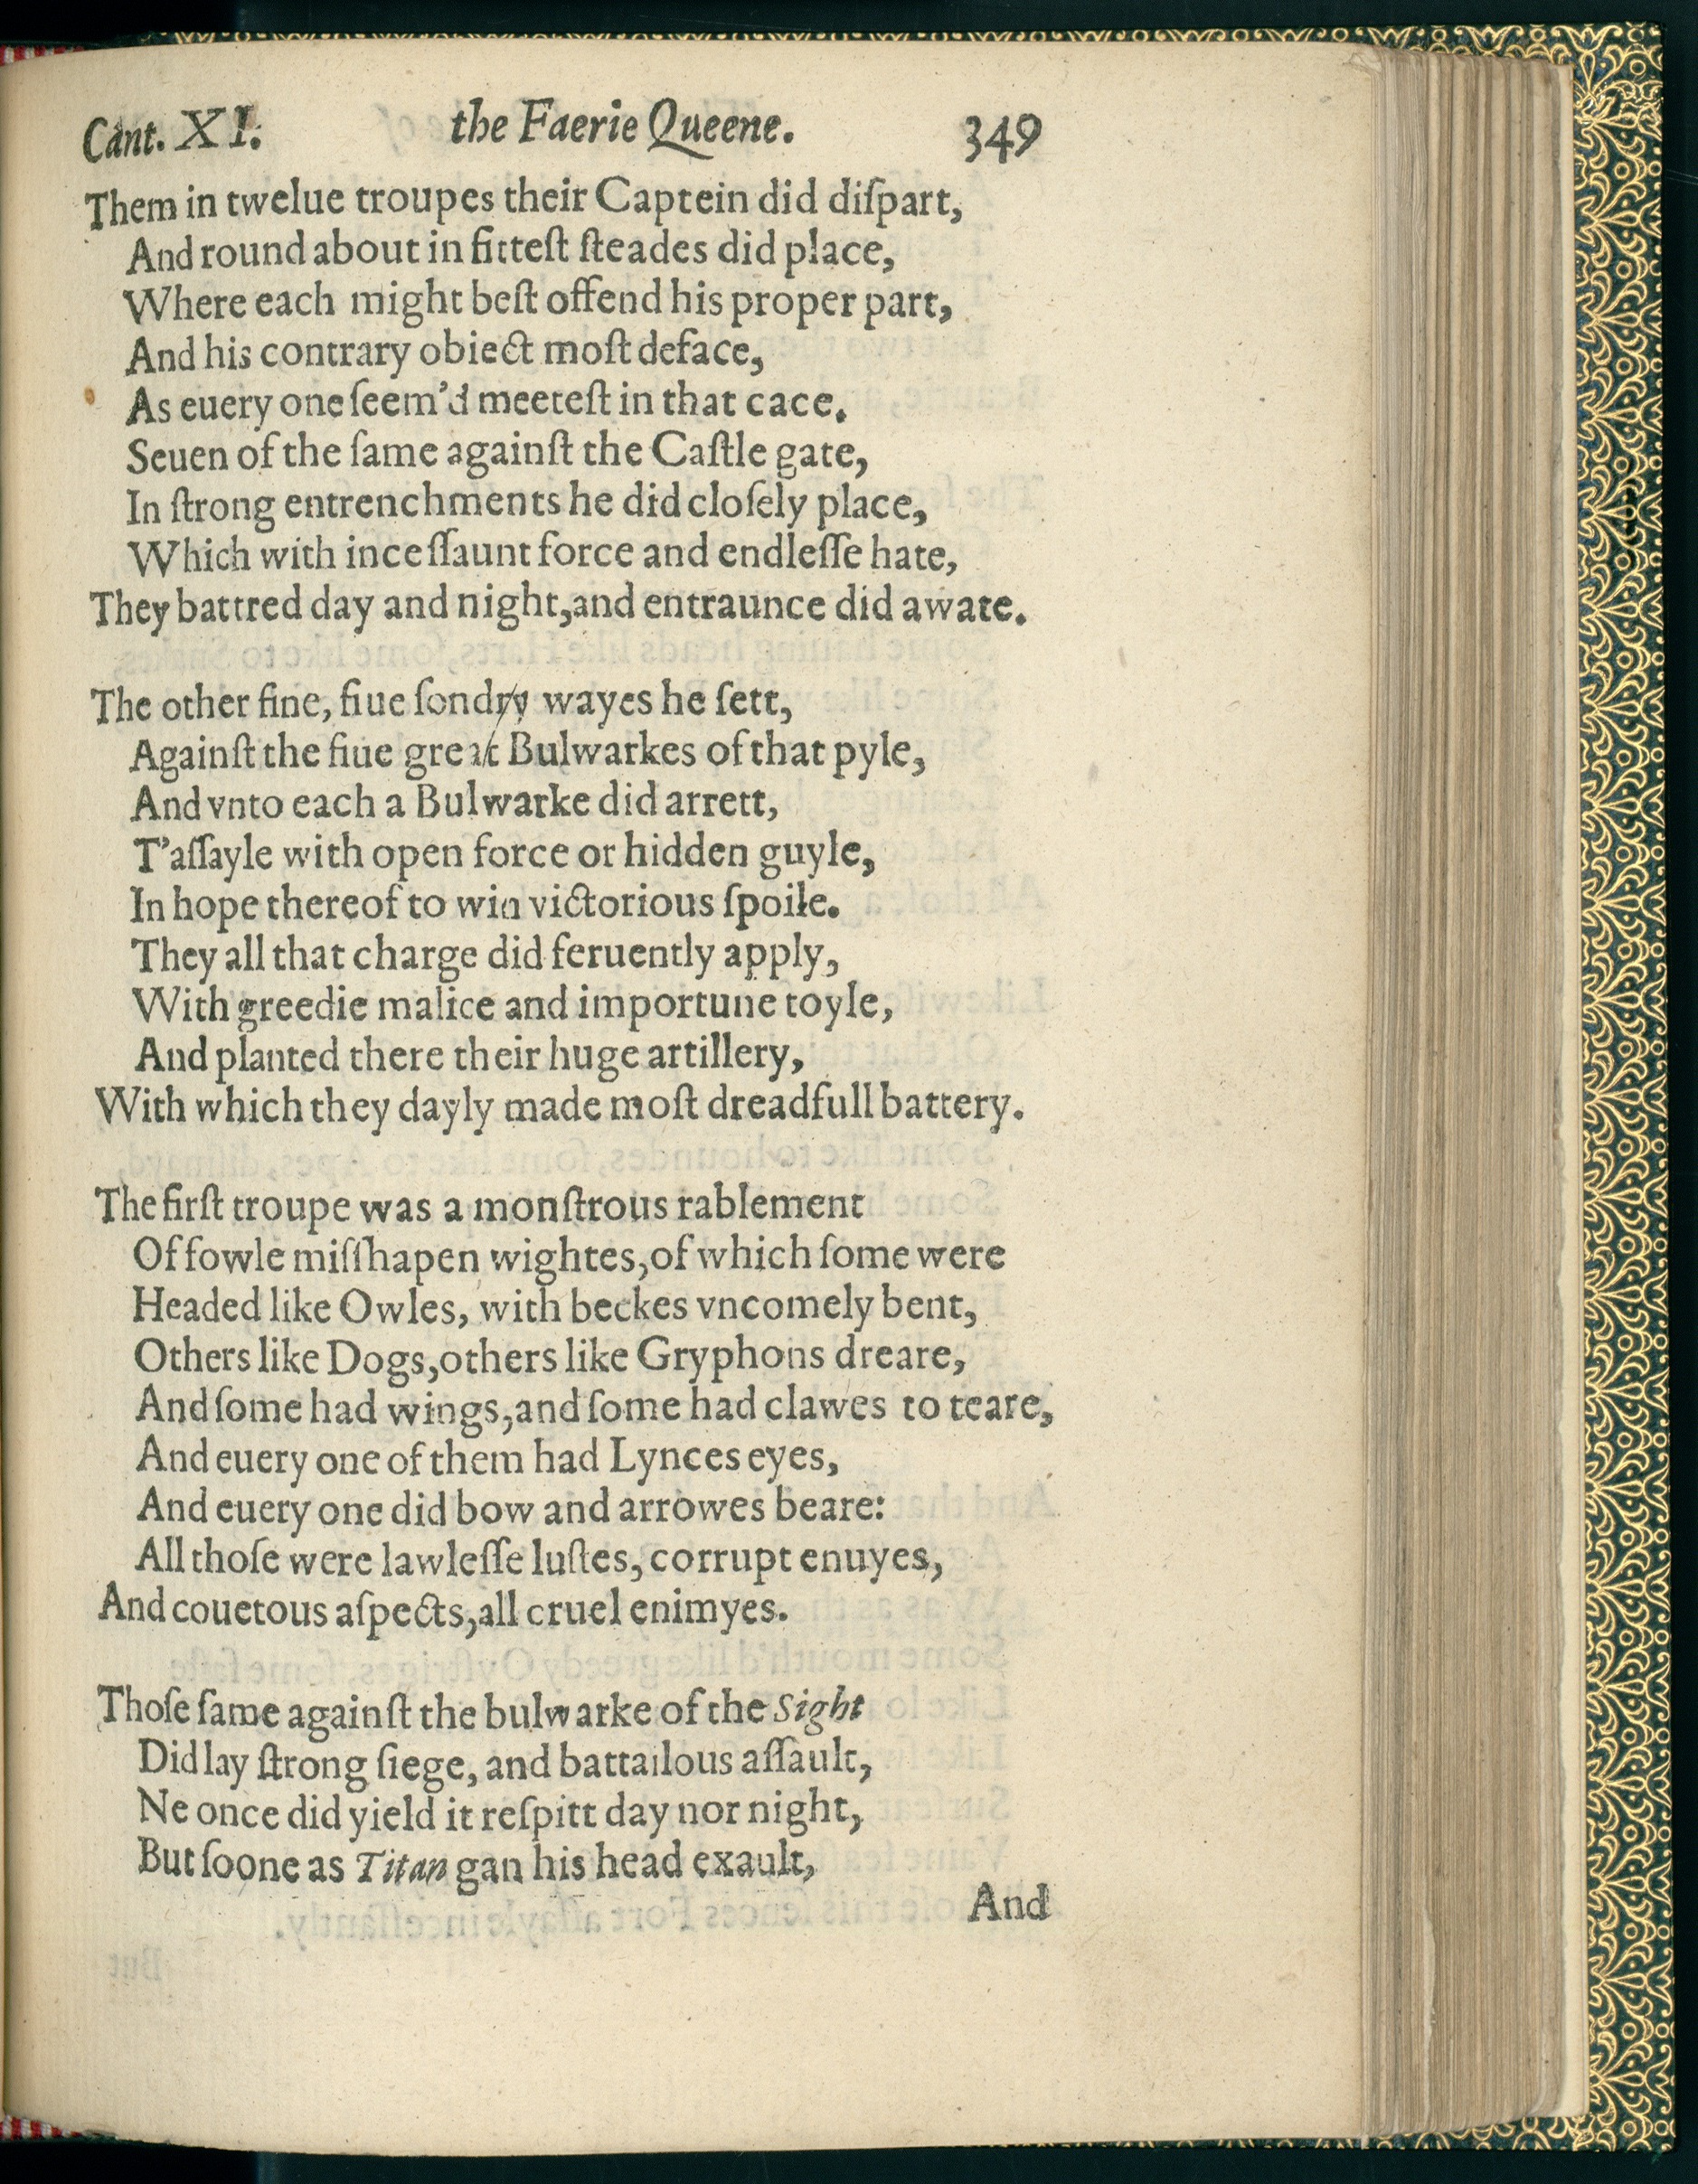 Cant. XI. the Faerie Queene. 349
Them in twelue troupes their Captein did diſpart,
And round about in fitteſt ſteades did place,
Where each might beſt offend his proper part,
And his contrary obiect moſt deface,
As euery one ſeem'd meeteſt in that cace.
Seuen of the ſame againſt the Caſtle gate,
In ſtrong entrenchments he did cloſely place,
Which with inceſſaunt force and endleſſe hate,
They battred day and night,and entraunce did awate.
The other fine, fiue ſondry wayes he ſett,
Againſt the fiue great Bulwarkes of that pyle,
And vnto each a Bulwarke did arrett,
T'aſſayle with open force or hidden guyle,
In hope thereof to win victorious ſpoile.
They all that charge did feruently apply,
With greedie malice and importune toyle,
And planted there their huge artillery,
With which they dayly made moſt dreadfull battery.
The firſt troupe was a monſtrous rablement
Of fowle miſſhapen wightes,of which ſome were
Headed like Owles, with beckes vncomely bent,
Others like Dogs,others like Gryphons dreare,
And ſome had wings,and ſome had clawes to teare,
And euery one of them had Lynces eyes,
And euery one did bow and arrowes beare:
All thoſe were lawleſſe luſtes, corrupt enuyes,
And couetous aſpects,all cruel enimyes.
Thoſe ſame againſt the bulwarke of the Sight
Did lay ſtrong ſiege, and battailous aſſault,
Ne once did yield it reſpitt day nor night,
But ſoone as Titan gan his head exault,
And